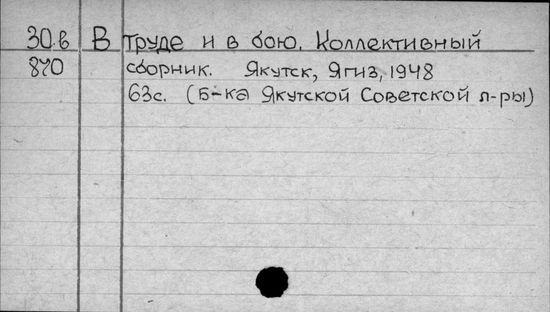 30.в В труде и в бою. Коллективный
870 сборник. Якутск, Ягиз, 1948
63с. (Б-ка Якутской Советской л-ры)